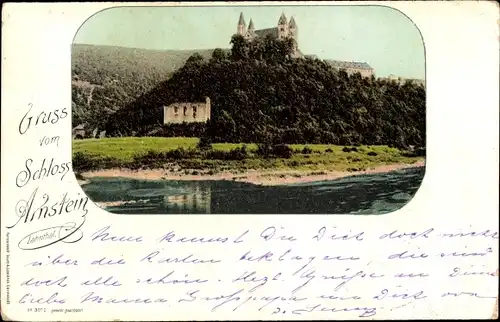 Gruss
vom
Schloss
Arnstein
Lahnthal.
Nun kannst Du Dich doch nicht
über die Karten beklagen, die sind
doch alle schön. Herzl. Grüsse an Deine
liebe Mama Grosspapa und Dich von